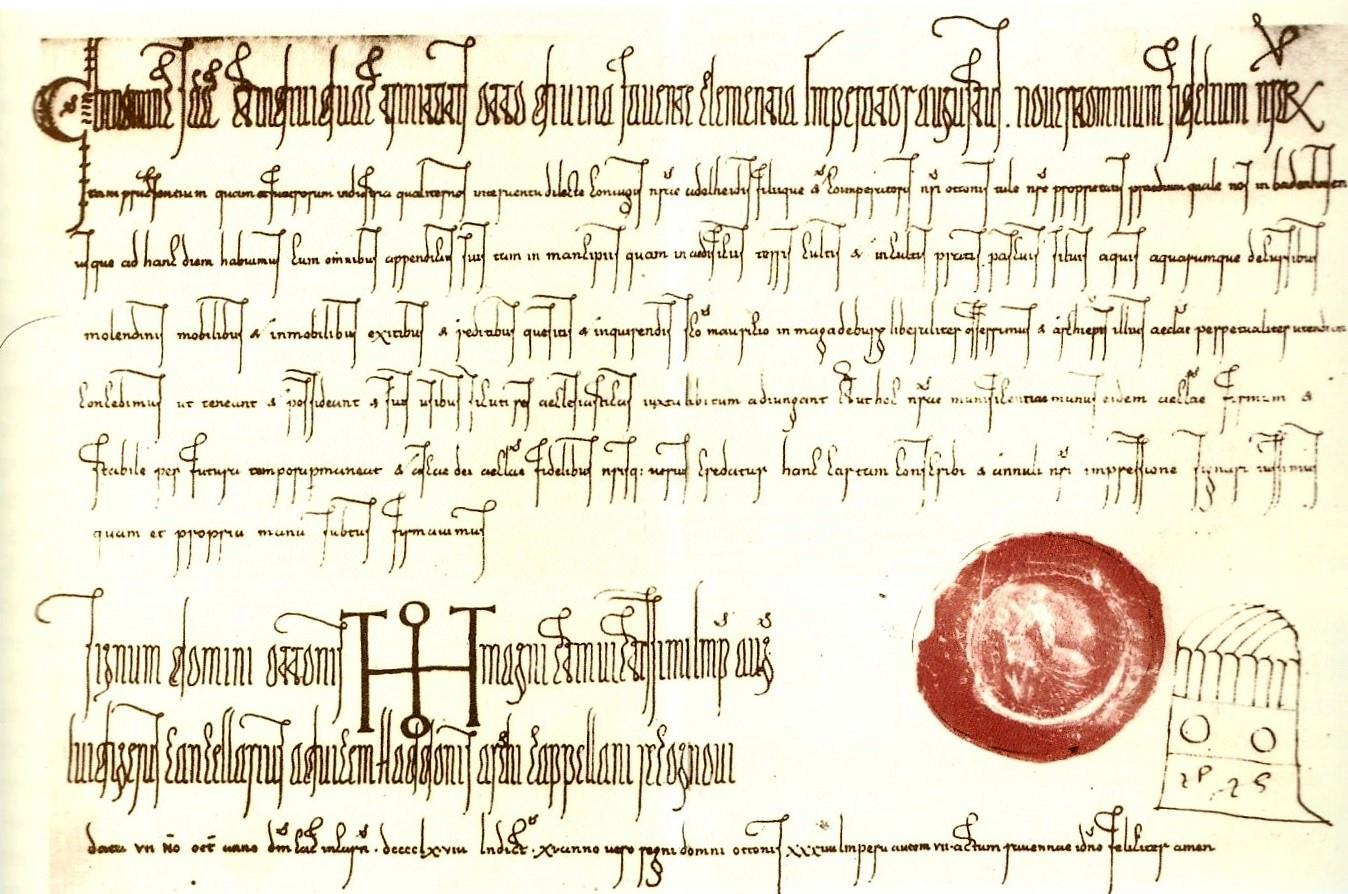 In nomine sanctę et individuę trinitatis otto divina favente clementia Imperator augustus. noverit omnium fidelium nrōr
tam presentium quam et futurorum industria qualiter nos interventu dilectę coniugis nrē adelheidis filiique et coimperatoris nri ottonis tale nrē proprietatis predium quale nos in
usque ad hanc diem habuimus cum omnibus appendiciis suis tam in mancipiis quam in aedificiis terris cultis & incultis pratis pascuis silvis aquis aquarumque decursibus
molendinis mobilibus & inmobilibus exitibus & reditibus quesitis & inquirendis sco mauricio in magadeburg liberaliter offerrimus & archiepis illius aeclae perpetualiter
concedimus ut teneant & possideant & suos usibus aecclesiasticis iuxta libitum adiungant & ut hoc nrae munificentiae munus eidem aeclae firmum &
stabile per futura tempora permaneat & a scae dei aeclae fidelibus nrisq; verius credatur hanc cartam conscribi & annuli nri impressione signari iussimus
quam et propria manu subtus firmavimus
Signum domini ottonis magni et invictissimi Imp aug
liudigerus cancellarius advicem Hattonis archi cappellani recognovi
data vii no oct anno dni ęincarn. dcccclxviii Indict. xi anno vero regni domni ottonis xxxiii Imperii autem vii actum ravennae i dno feliciter amen